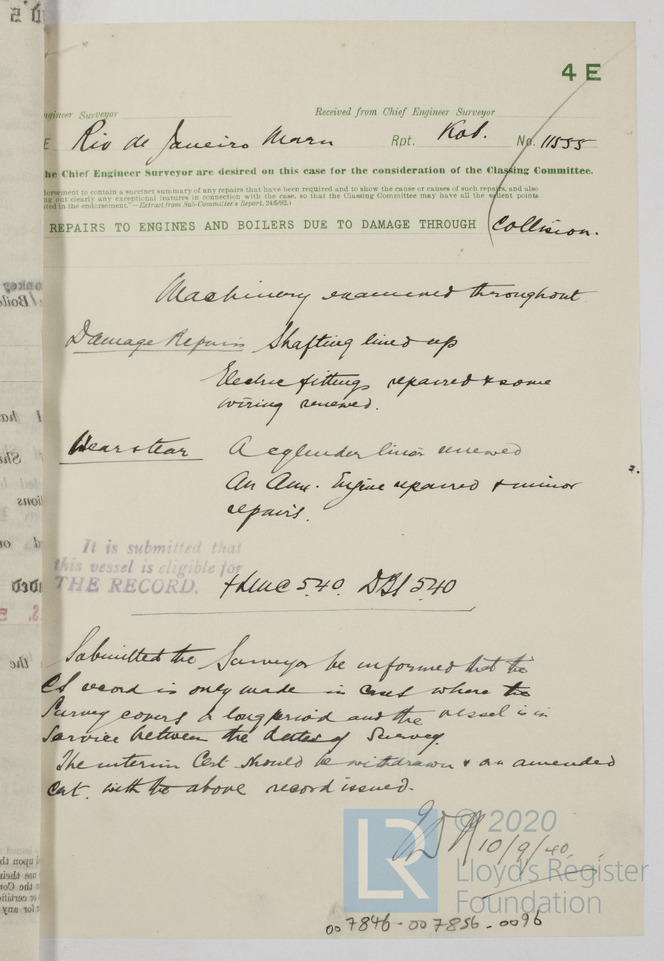 4 E
Engineer Surveyor Received from Chief Engineer Surveyor
E Rio de Janeiro Maru Rpt. Kob. No. 11555
the Chief Engineer Surveyor are desired on this case for the consideration of the Classing Committee.
dorsement to contain a succinct summary of any repairs that have been required and to show the cause or causes of such repairs, and also
ng out clearly any exceptional features in connection with the case, so that the Classing Committee may have all the salient points
ted in the endorsement."—Extract from Sub-Committee's Report, 24/5/92.)
REPAIRS TO ENGINES AND BOILERS DUE TO DAMAGE THROUGH Collision.
Machinery examined throughout
Damage Repairs Shafting lined up
Electric fittings repaired & some
wiring renewed.
Wear & tear A cylinder liner renewed
An Aux. Engine repaired & minor
repairs.
It is submitted that
this vessel is eligible for
THE RECORD. + LMC 5.40. DBS 5.40
Submitted the Surveyor be informed that the
CS record is only made in cases where the
Survey covers a long period and the vessel is in
Service between the dates of Survey.
The interim Cert should be withdrawn & an amended
cert. with the above record issued.
10/9/40.
LR
© 2020
Lloyd's Register
Foundation
007846-007856-0096